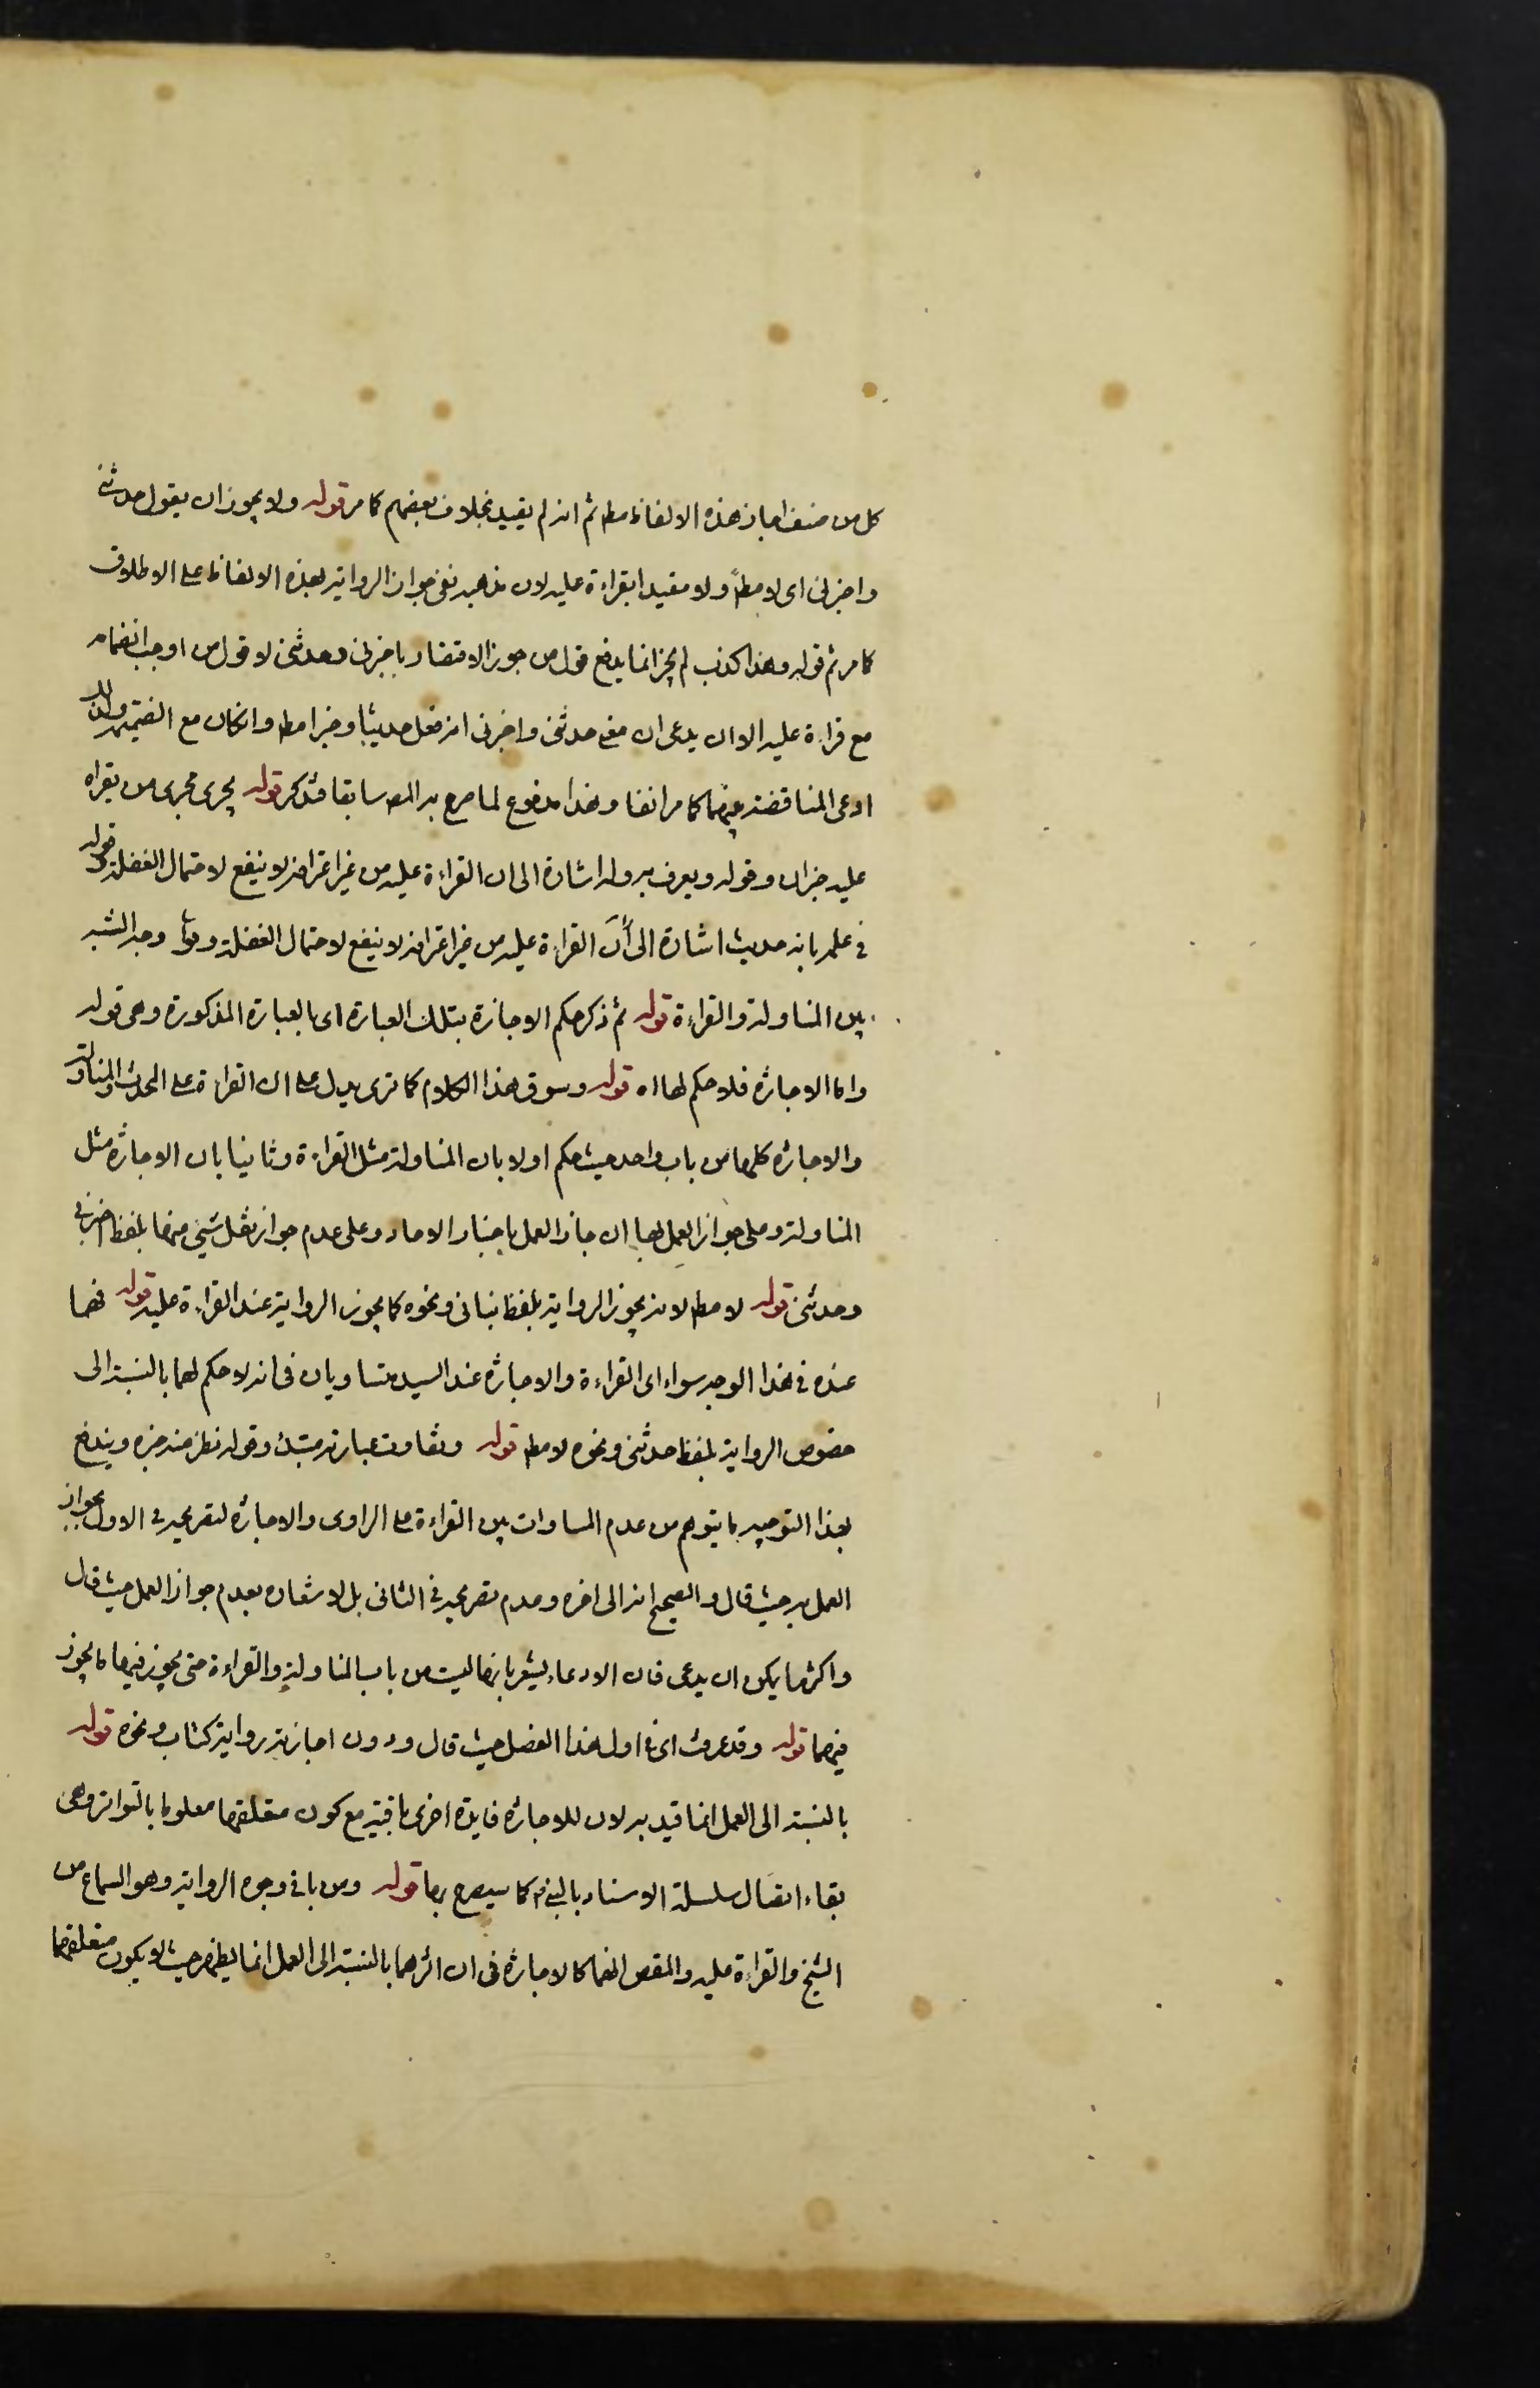 كل من صنف اجاز هذه الالفاظ مط ثم انه لم يقيد بخلاف بعضهم كما مر قوله ولا يجوز ان يقول حدثنى
واخبرنى اى لا مطً ولا مقيدا بقراءة عليه لان مذهبه نفى جواز الرواية بهذه الالفاظ على الاطلاق
كما مر ثم قوله وهذا كذب لم يجز انما يدفع قول من جوز الاقتصار باخبرنى وحدثنى لا قول من اوجب انضمامه
مع قراءة عليه الا ان يدعى ان معنى حدثنى واخبرنى انه فعل حديثا وخبرا مط وان كان مع الضميمة ولذا
ادعى المناقضة بينهما كما مر انفا وهذا مدفوع لما صرح به المص سابقا فتذكر قوله يجرى مجرى من يقراه
عليه خبران وقوله ويعرف به وله اشارة الى ان القراءة عليه من غير اعترافه لا ينفع لاحتمال الغفلة وقوله
فى علمه بانه حديث اشارة الى أنّ القراءة عليه من غير اعترافه لا ينفع لاحتمال الغفلة وجه الشبه
بين المناولة والقراءة قوله ثم ذكر حكم الاجازة بتلك العبارة اى بالعبارة المذكورة وهى قوله
واما الاجازة فلا حكم لها اه قوله وسوق هذا الكلام كما ترى يدل على ان القراءة على المحدث والمناولة
والاجازة كلها من باب واحد حيث حكم اولا بان المناولة مثل القراءة وثانيا بان الاجازة مثل
المناولة وعلى جواز العمل بها ان جاز العمل باخبار الاحاد وعلى عدم جواز نقل شئ منها بلفظ اخبرنى
وحدثنى قوله لا مط لانه يجوز الرواية بلفظ انبانى ونحوه كما يجوز الرواية عند القراءة عليه قوله فهما
عنده فى هذا الوجه سواء اى القراءة والاجازة عند السيد متساويان فى انه لا حكم لهما بالنسبة الى
خصوص الرواية بلفظ حدثنى ونحوه لا مط قوله وتفاوت عبارته مبتدا وقوله نظر منه خبره ويندفع
بهذا التوجيه ما يتوهم من عدم المساوات بين القراءة على الراوى والاجازة لتصريحه فى الاول بجواز
العمل به حيث قال والصحيح انه الى اخره وعدم تصريحه فى الثانى بل لاشعاره بعدم جواز العمل حيث قال
واكثر ما يمكن ان يدعى فان الادعاء يشعر بانها ليست من باب المناولة والقراءة حتى يجوز فيها ما يجوز
فيهما قوله وقد عرفت اى فى اول هذا الفصل حيث قال ودون اجازته رواية كتاب ونحوه قوله
بالنسبة الى العمل انما قيد به لان للاجازة فايدة اخرى باقية مع كون متعلقها معلوما بالتواتر وهى
بقاء اتصال سلسلة الاسناد بالنبى كما سيصرح بها قوله ومن باقى وجوه الرواية وهو السماع من
الشيخ والقراءة عليه والمقص انهما كالاجازة فى ان اثرهما بالنسبة الى العمل انما يظهر حيث لا يكون متعلقهما